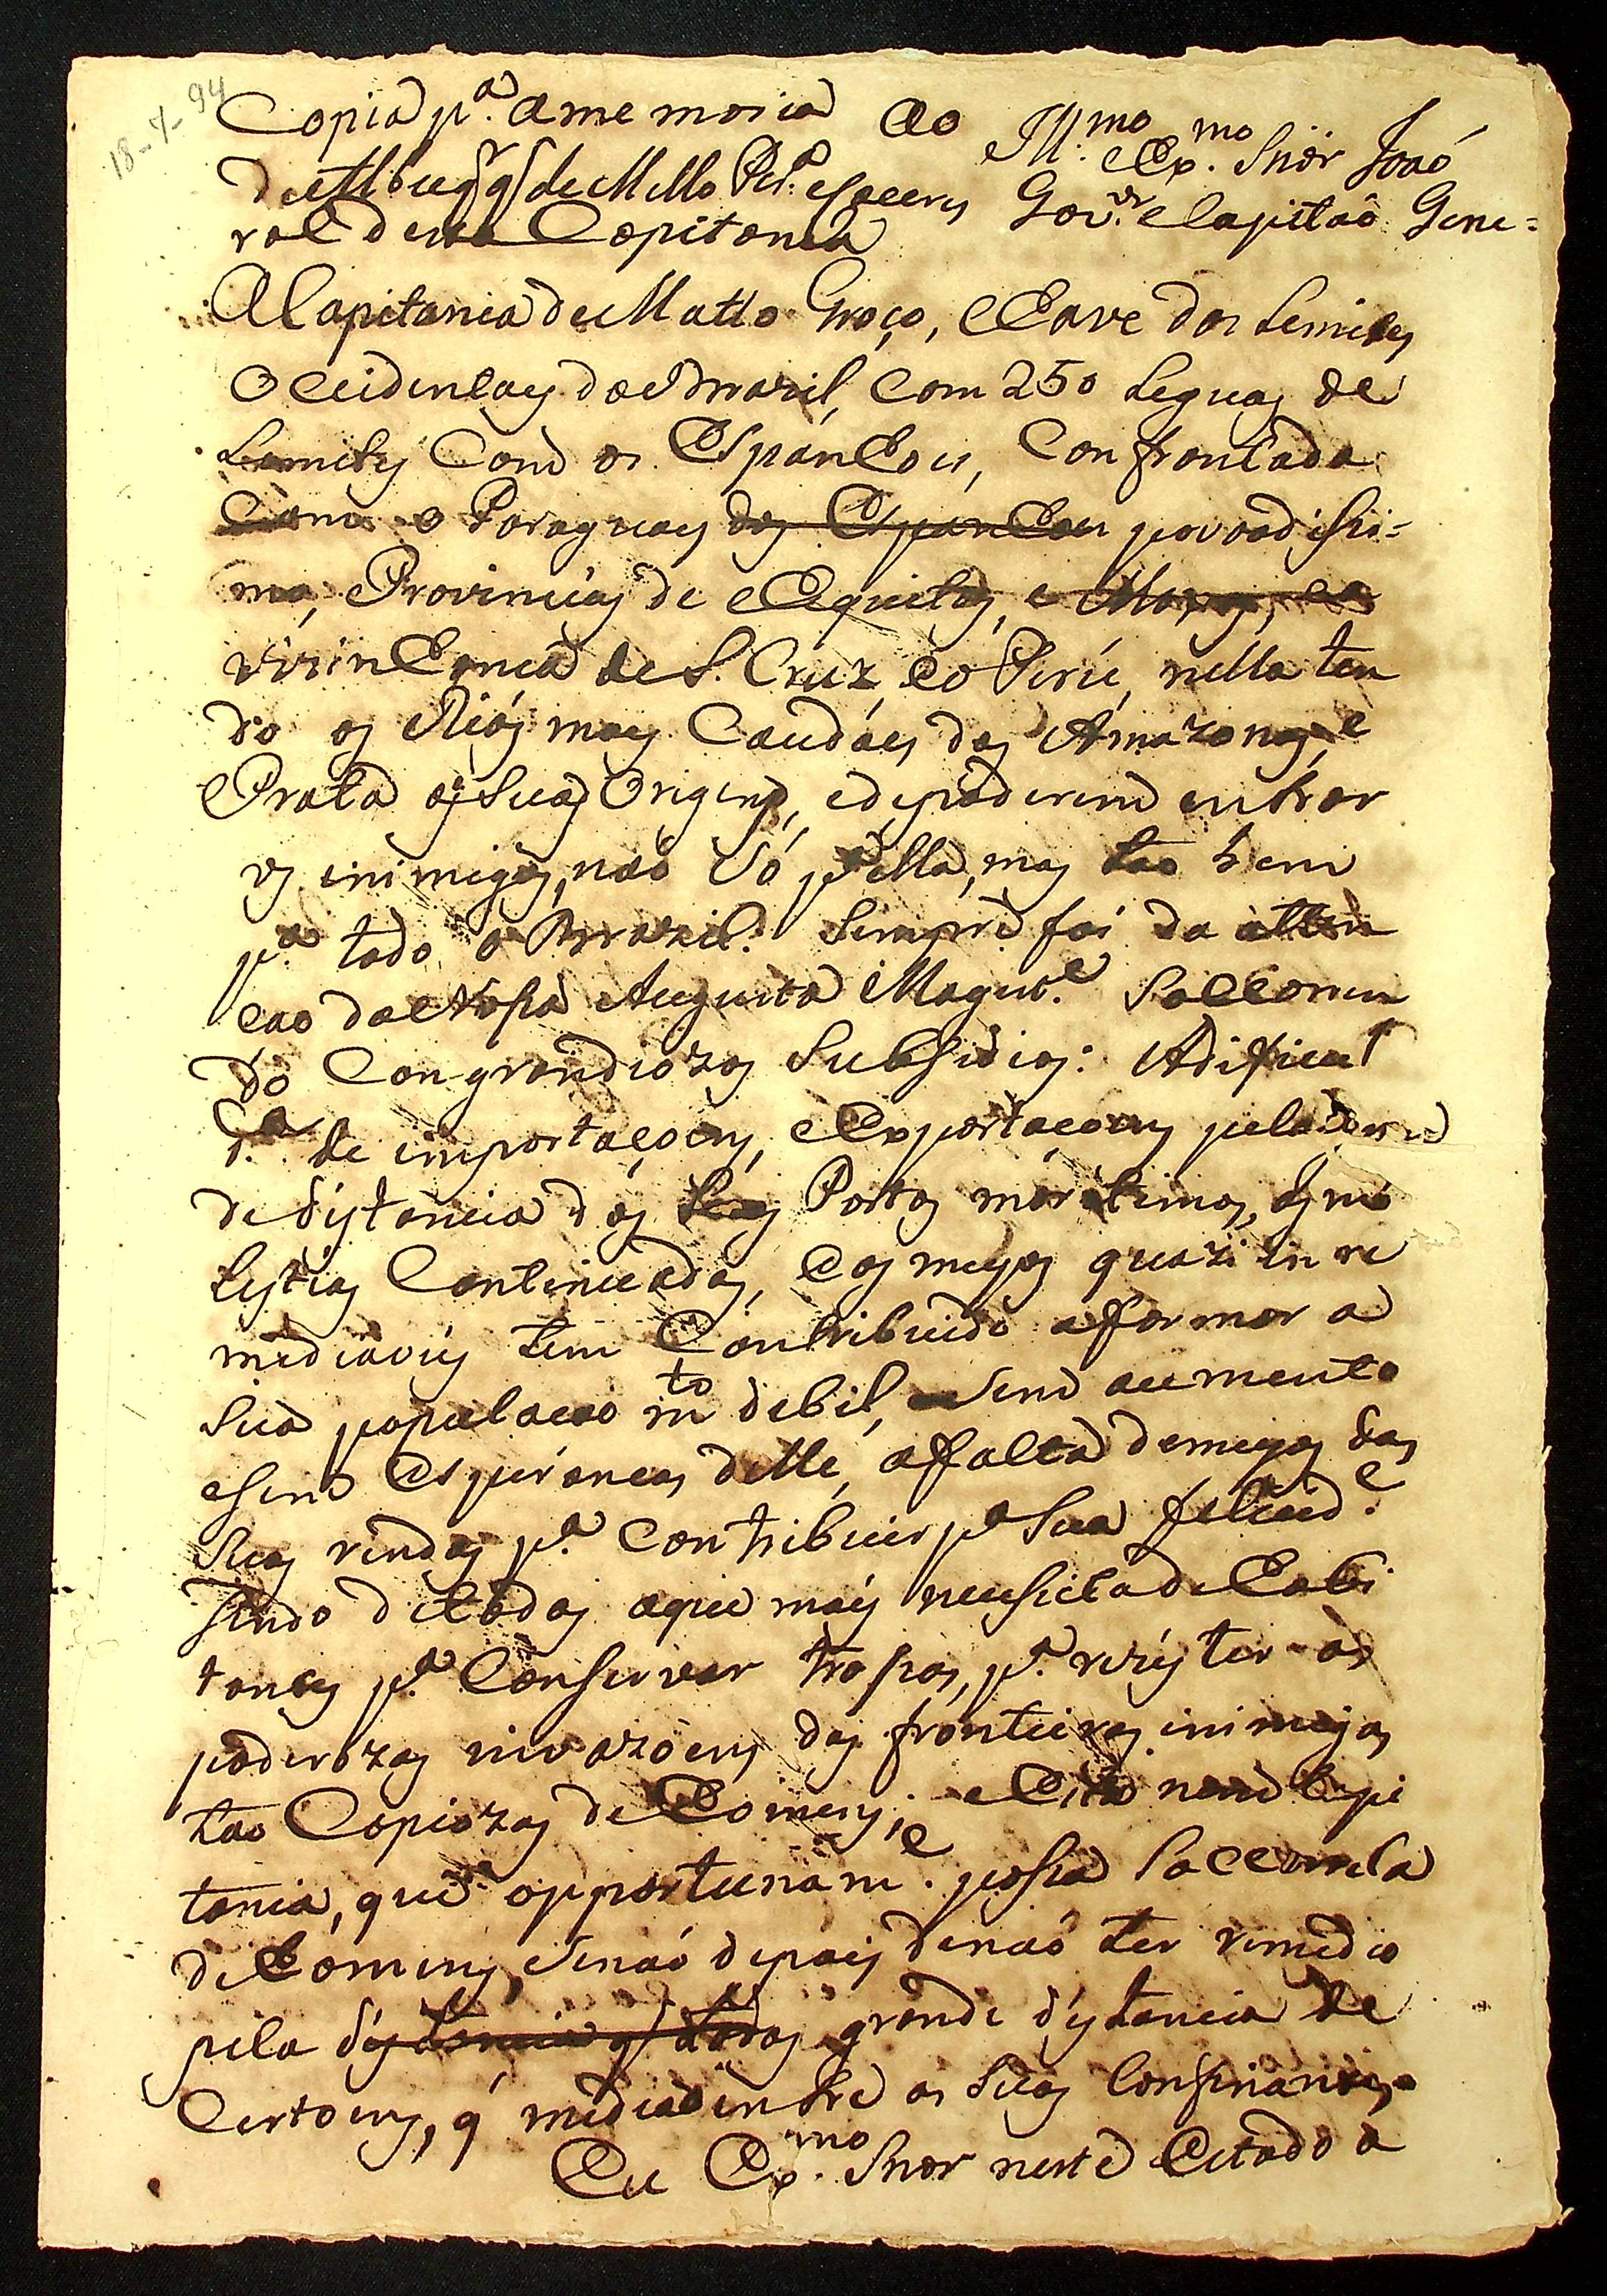 18-7-94
Copia p.ª a memoria ao Ill.mo Ex.mo Snõr Joaõ
de Albuqq de Mello Per.ª e Caceres Gov.or e Capitaõ Gene-
ral desta Capitania
A Capitania de Matto Groço, Chave dos Limites
Occidentaes do Brazil, Com 250 Leguas de
Lemites Com os Espanhoes, Confrontada
Com o Paraguay dos Espanhoes povoadissi-
ma, Provincias de Chiquitos, e Moxos,
vizinhança de S. Cruz, e o Perú, nella ten
do os Rios mais Caudaes das Amazonas, e
Prata as Suas Origens, e de poderem entrar
os inimigos, naõ Só p.ª ella, mas tao bem
p.ª todo o Brazil. Sempre foi da atten
çao da Nossa Augusta Magest.e Soccorren
do Con grandiozos Subsidios: A dificul
d.e de importaçoens, Exportaçoens pela
de distancia dos Portos maritimos, as mo
lestias Continuadas, e os meyos quazi in re
mediaveis tem Contribuido a formar a
Sua populaçao m.to debil, Sem aumento
e Sem Esperanças delle, a falta de meyos das
Suas rendas p.ª Contribuir p.ª Sua felicid.e
Sendo de todas a que mais necessita de habi
tantes p.ª Conservar tropas, p.ª rezistir as
poderozas invazoens das fronteiras inimigas
tao Copiozas de homens; e Esta nem Capi
tania, que opportunam.e possa Soccorrela
de homens, Senaó depois de naó ter remedio
pela distancia q todas grande distancia de
Certoens, q media entre as Suas Confinantes.
Eu Ex.mo Snor neste Estado a